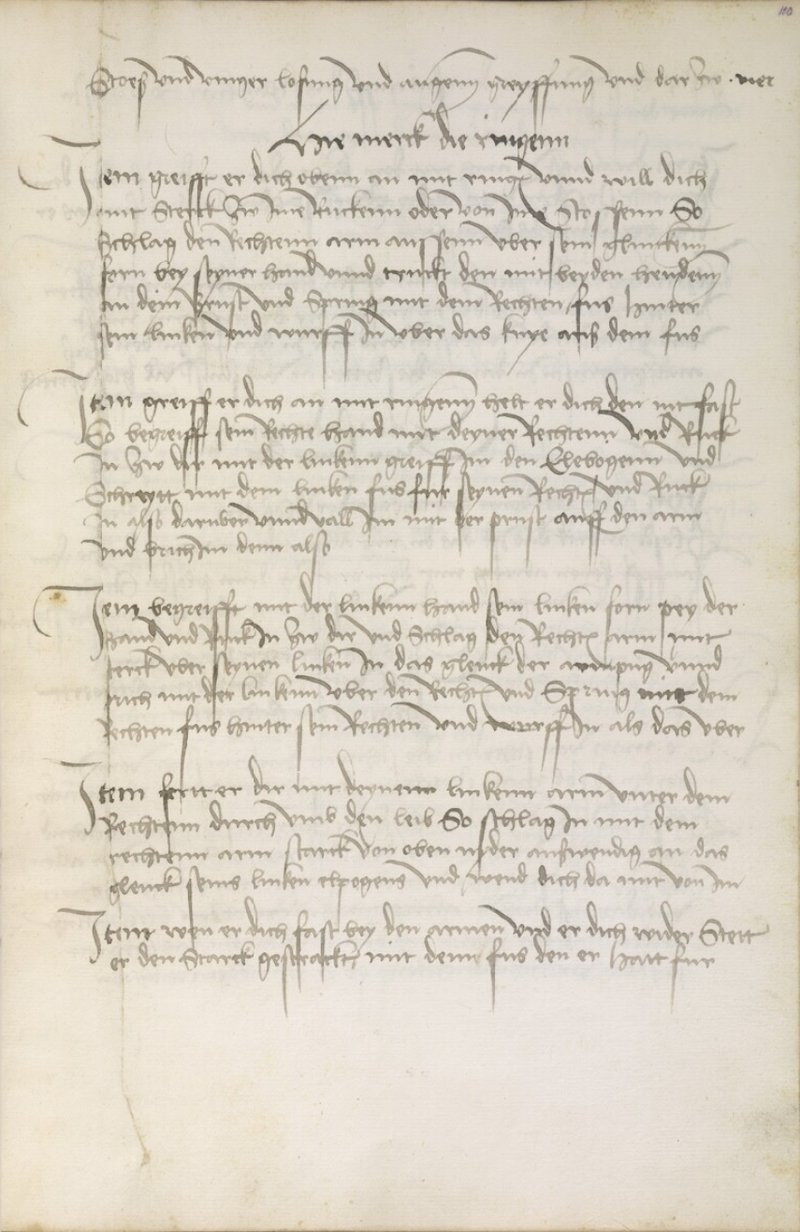 110
Stoeß vnd vinger losung vnd augenn greyffung vnd dar zw vier
Hie merck die ringenn
Item greifft er dich obenn an mit ringen vnnd will dich
mit Sterck zw im Ruckenn oder von im Stossenn So
Schlag den Rechtenn arm aussenn vber sein glinckenn
forn bey seyner hand vnnd truckt den mit beyden hendenn
an dein brust vnd Spring mit dem Rechten fus hinter
sein linken vnd wurff In vber das knye aus dem fus
Item greiff er dich an mit ringenn helt er dich den nit fast
So begreiff sein Rechte hand mit deyner Rechtenn vnd Ruck
In zw dir mit der linkenn greiff im den Elebogenn vnd
Schreytt mit dem linken fus fur seynen Rechten vnd Ruck
In also daruber vnnd vall Im mit der prust auff den arm
vnd brich Im denn also
Item begreifft mit der linkenn hand sein linken forn pey der
hand vnd Ruck In zw dir vnd Schlag den Rechten arm mit
sterck vber seynen linken In das glenck der armpug vnnd
prich mit der linkenn vber den Rechten vnd Spring mit dem
rechten fus hinter sein Rechten vnd wurff In als das vber
Item fertt er dir mit deynenn linkenn arm vnter dem
Rechtenn durch vmb den leib So schlag In mit dem
rechtenn arm starck von oben nyder auswendig an das
glenck seins linken elpogens vnd wend dich da mit von Im
Item wen er dich fast bey den armen vnd er dich wider Stett
er den Starck gestrackt mit dem fus den er hatt fur